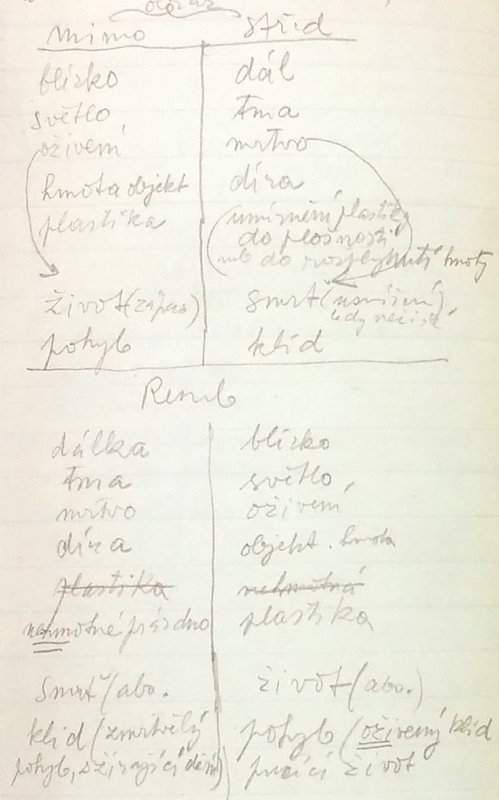 obraz
mimo střed
blízko dál
světlo tma
oživení mrtvo
hmota objekt díra
plastika (umírnění plastiky
do plošnosti
nebo do rozplynutí hmoty
život (zápas) smrt (usmíření),
tedy
pohyb klid
Remb
dálka blízko
tma světlo
mrtvo oživení
díra objekt. hmota
plastika nehmotná
nehmotné prázdno plastika
smrt (abs. život (abs.)
klid (zmrtvělý pohyb (oživený klid
pohyb, život